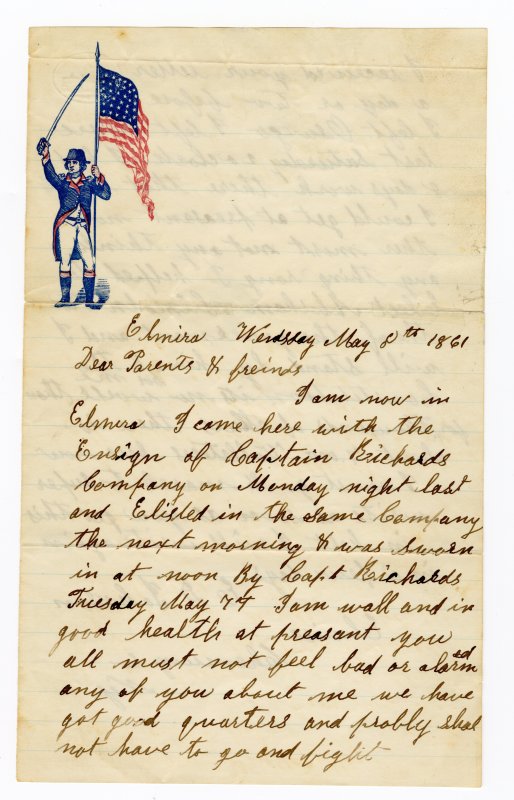 Elmira Wendssay May 8th 1861
Dear Parents & freinds
I am now in
Elmera I came here with the
Ensign of Captain Richards
Company on Monday night last
and Elisted in the same Company
the next morning & was sworn
in at noon By Capt Richards
Tuesday May 7th I am wall and in
good health at preasant you
all must not feel bad or alarmed
any of you about me we have
got good quarters and probly shal
not have to go and fight